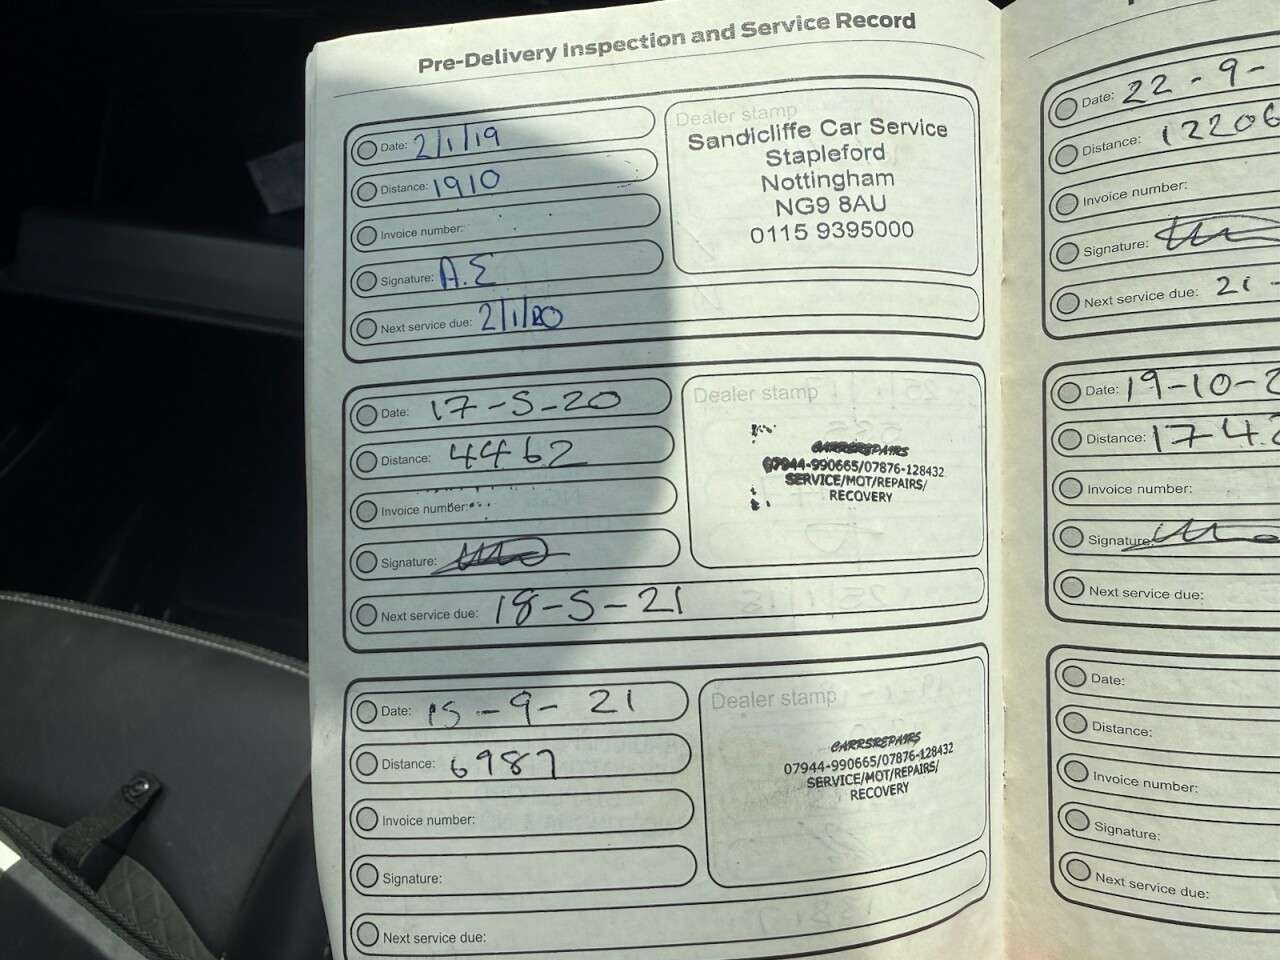 Pre-Delivery Inspection and Service Record
Date: 2/1/19
Distance: 1910
Invoice number:
Signature: A.E
Next service due: 2/1/20
Dealer stamp
Sandicliffe Car Service
Stapleford
Nottingham
NG9 8AU
0115 9395000
Date: 17-5-20
Distance: 4462
Invoice number:
Signature:
Next service due: 18-5-21
Dealer stamp
CARRSREPAIRS
07944-990665/07876-128432
SERVICE/MOT/REPAIRS/
RECOVERY
Date: 15-9-21
Distance: 6987
Invoice number:
Signature:
Next service due:
Dealer stamp
CARRSREPAIRS
07944-990665/07876-128432
SERVICE/MOT/REPAIRS/
RECOVERY
Date: 22-9-
Distance: 12206
Invoice number:
Signature:
Next service due: 21-
Date: 19-10-2
Distance: 174
Invoice number:
Signature:
Next service due:
Date:
Distance:
Invoice number:
Signature:
Next service due: